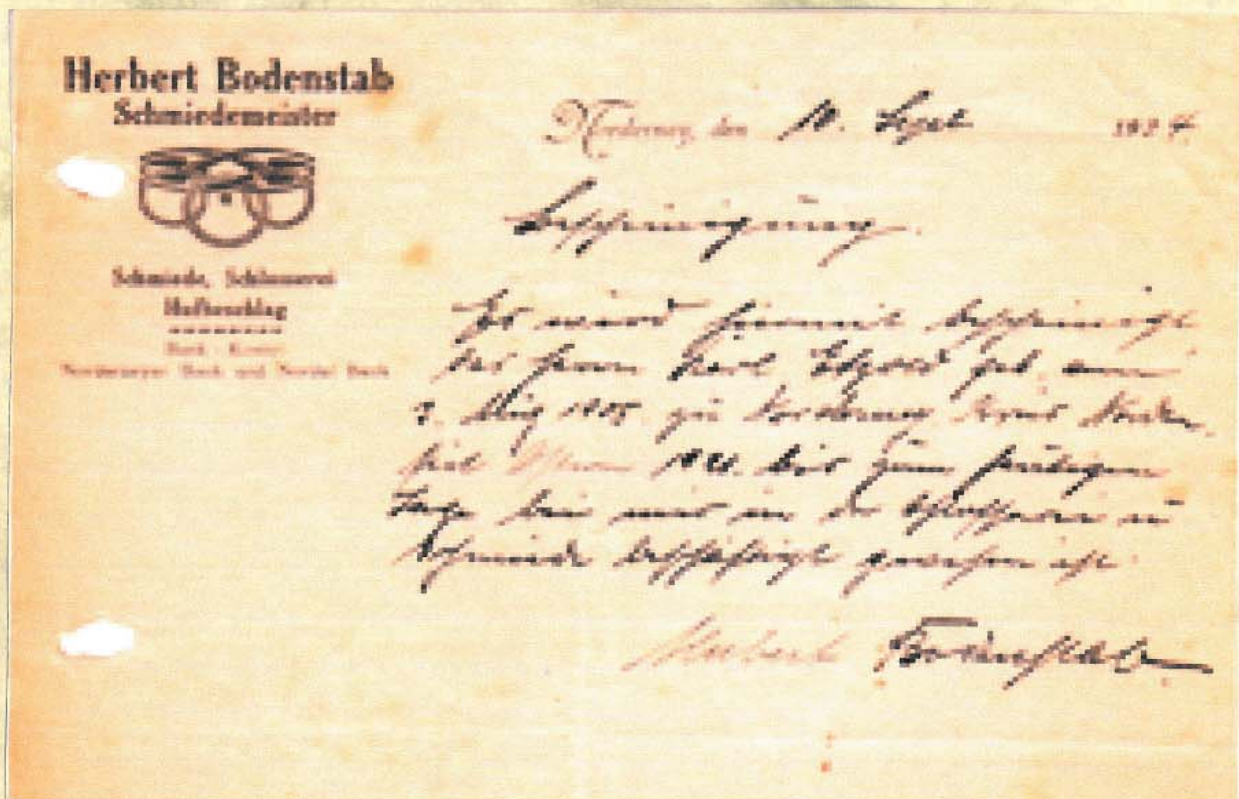 Herbert Bodenstab
Schmiedemeister
Norderney, den 10. Sept. 1924.
Schmiede, Schlosserei
Hufbeschlag
Bank-Konto:
Norderneyer Bank und Norder Bank
Bescheinigung.
Es wird hiermit bescheinigt
das Herr Karl geb. am
1905 zu Norderney Kreis Norden.
seit Ostern bis zum heutigen
Tage bei mir in der Schlosserei u
Schmiede beschäftigt gewesen ist.
Herbert Bodenstab